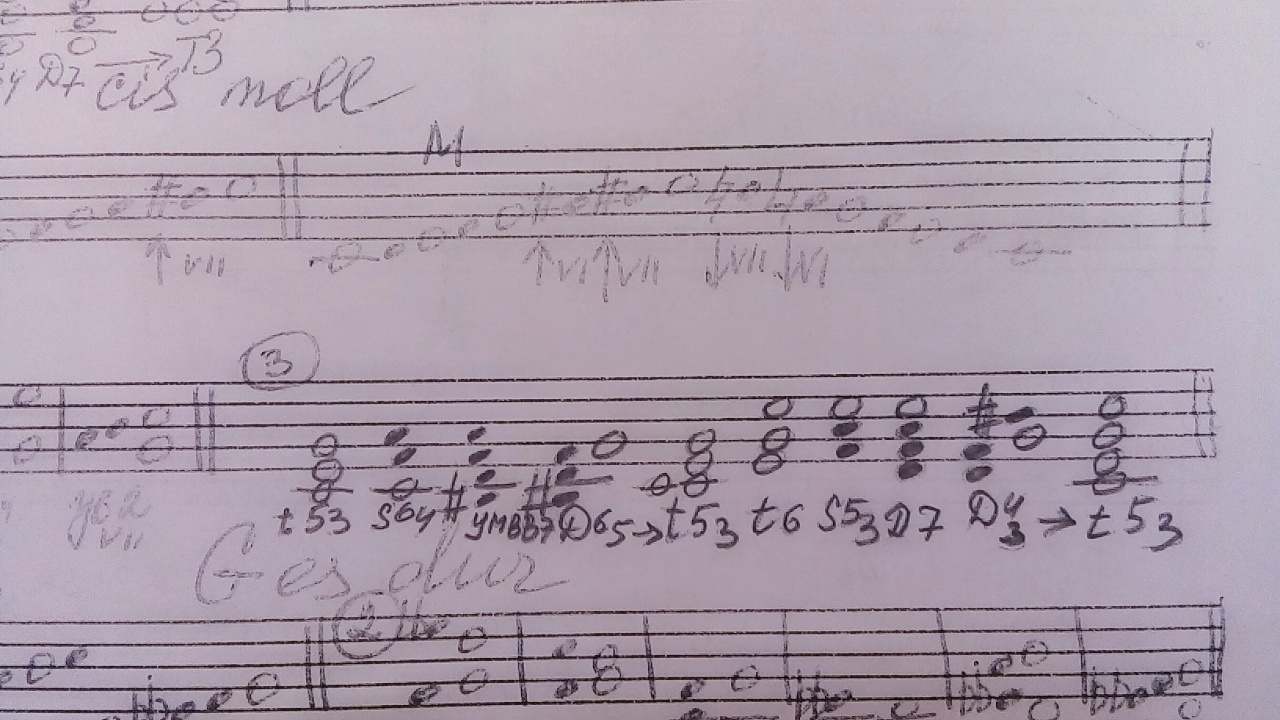 D7 → T3
cis moll
M
↑VII ↑VI ↑VII ↓VII ↓VI
3
ув2
VII
t53 s64 умвв7 D65 → t53 t6 S53 D7 D43 → t53
Ges dur
2